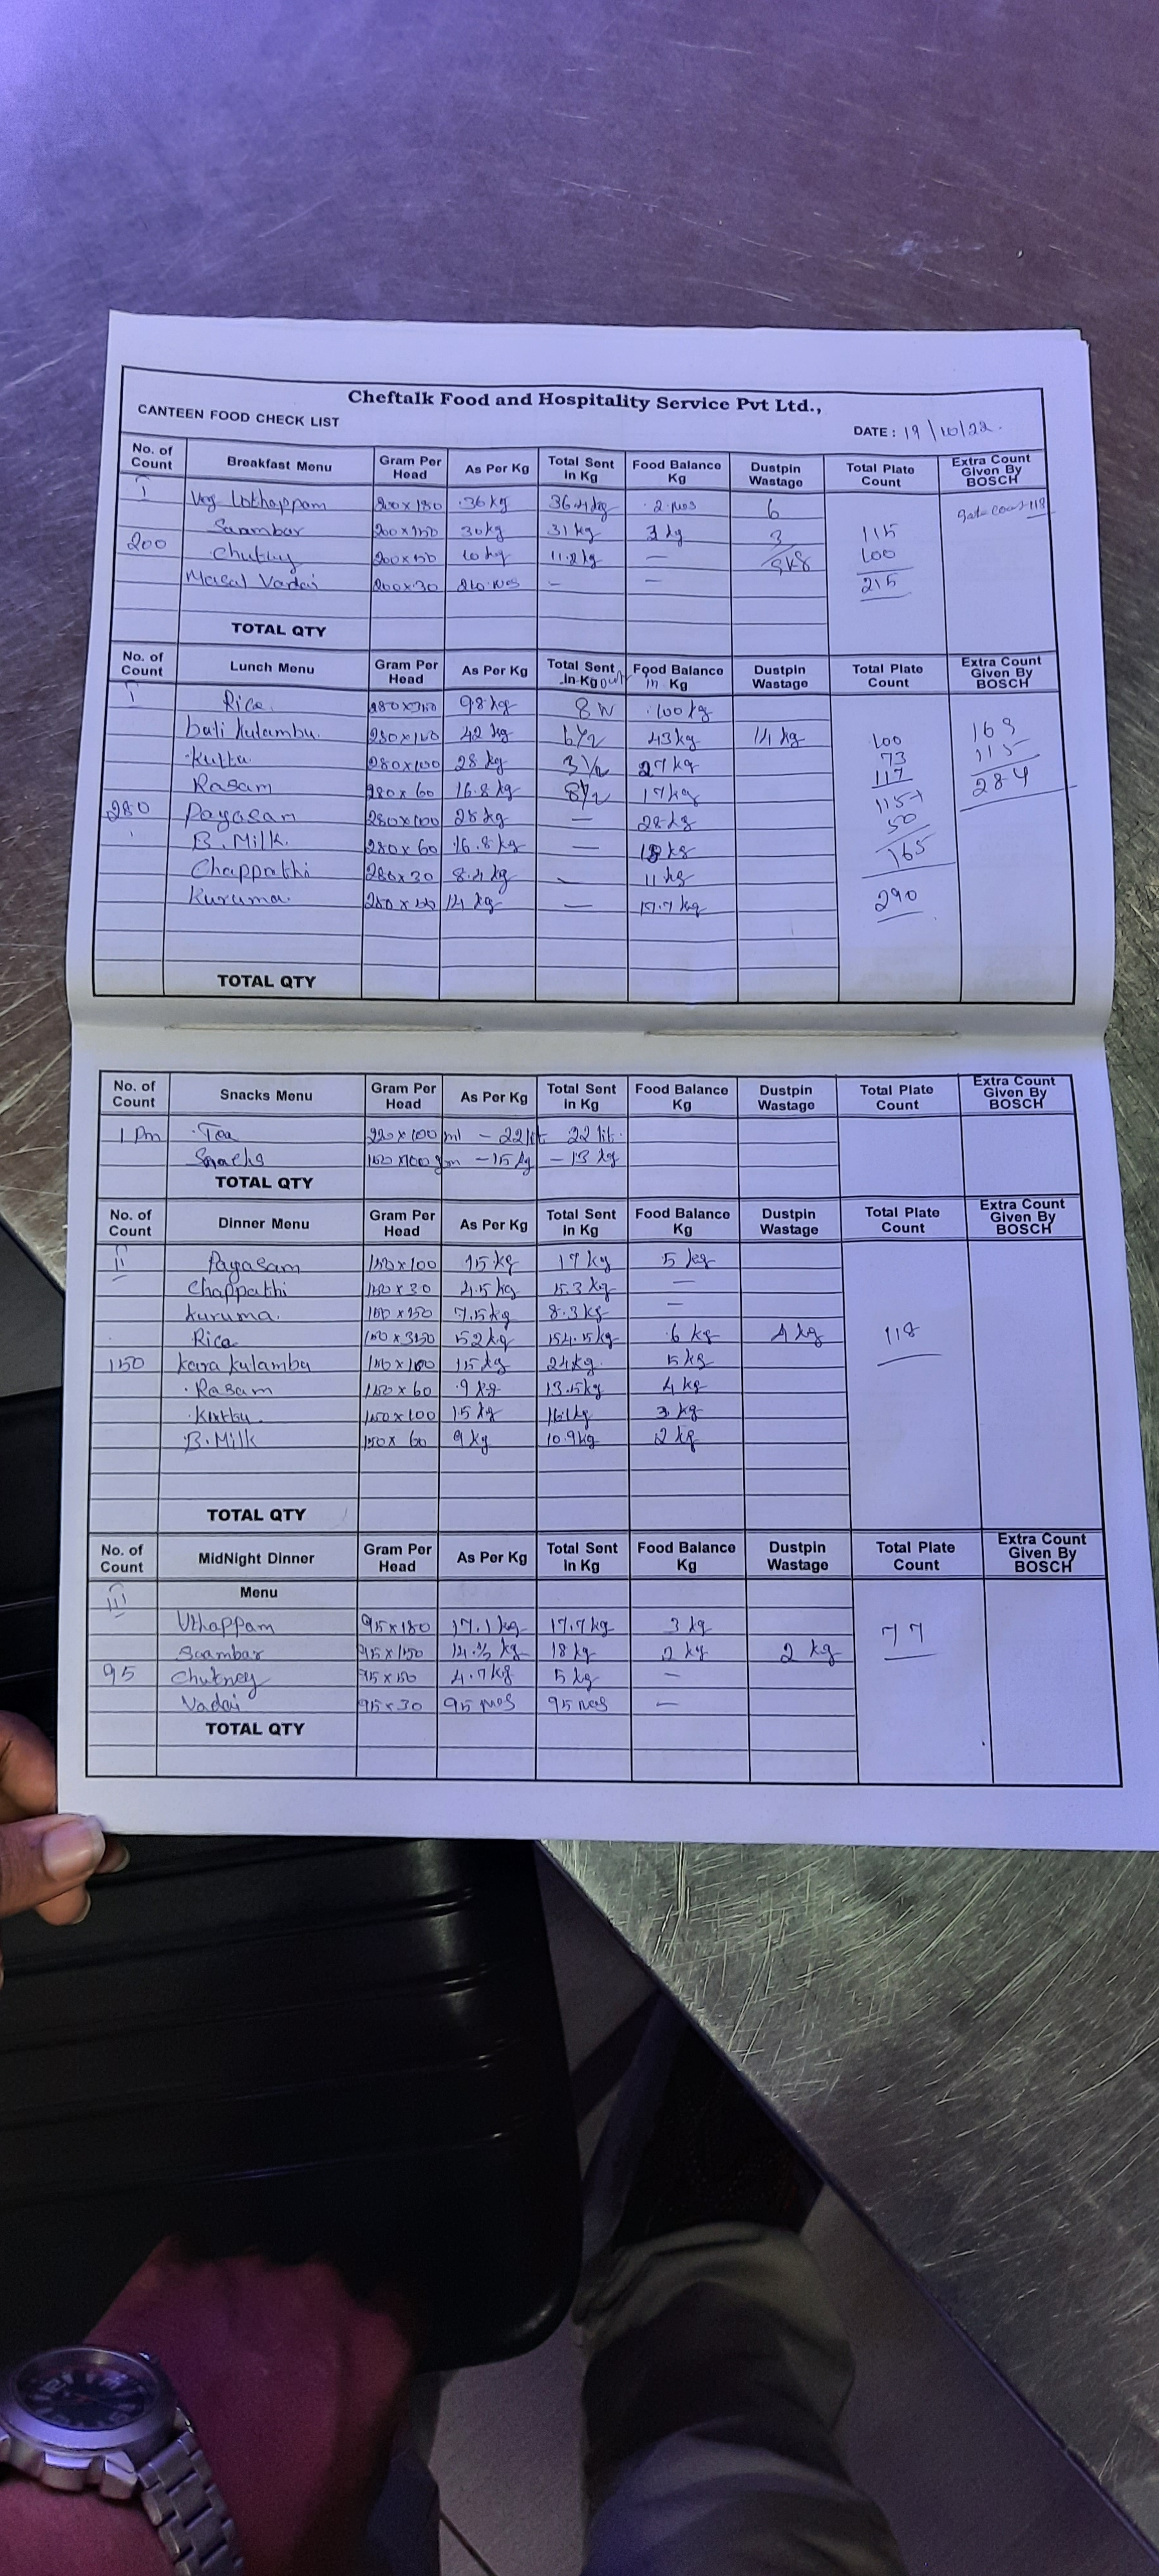 Cheftalk Food and Hospitality Service Pvt Ltd.,
CANTEEN FOOD CHECK LIST
DATE : 19/10/22.
No. of Count Breakfast Menu Gram Per Head As Per Kg Total Sent in Kg Food Balance Kg Dustpin Wastage Total Plate Count Extra Count Given By BOSCH
I Veg 200x180 36kg 36.4kg 2 nos 6 118
Saambar 200x150 30kg 31kg 3 115
200 200x50 10kg 11.2kg — 100
Masal Vadai 200x30 — — 215
TOTAL QTY
No. of Count Lunch Menu Gram Per Head As Per Kg Total Sent in Kg out Food Balance in Kg Dustpin Wastage Total Plate Count Extra Count Given By BOSCH
Rice 280x350 98kg 100kg
kulambu 280x150 42kg 6½ 43kg 14kg 100 169
Kuttu 280x100 28kg 3½ 27kg 73 115
Rasam 280x60 16.8kg 8½ 17kg 117 284
280 Payasam 280x100 28kg — 28kg 115+
B.Milk 280x60 16.8kg — 50
Chappathi 280x30 8.4kg — 11kg 165
Kuruma 14kg — 17.7kg 290
TOTAL QTY
No. of Count Snacks Menu Gram Per Head As Per Kg Total Sent in Kg Food Balance Kg Dustpin Wastage Total Plate Count Extra Count Given By BOSCH
Tea 220x100 ml - 22lit 22lit.
Snacks 150x100 gm - 15kg - 13kg
TOTAL QTY
No. of Count Dinner Menu Gram Per Head As Per Kg Total Sent in Kg Food Balance Kg Dustpin Wastage Total Plate Count Extra Count Given By BOSCH
II Payasam 150x100 15kg 17kg 5kg
Chappathi 150x30 4.5kg 5.3kg —
Kuruma 7.5kg 8.3kg —
Rice 52kg 54.5kg 6kg 4kg 118
150 kara kulambu 150x100 15kg 24kg 5kg
Rasam 150x60 9kg 13.5kg 4kg
Kuttu 150x100 15kg 16.1kg 3kg
B.Milk 150x60 9kg 10.9kg 2kg
TOTAL QTY
No. of Count MidNight Dinner Gram Per Head As Per Kg Total Sent in Kg Food Balance Kg Dustpin Wastage Total Plate Count Extra Count Given By BOSCH
III Menu
Uthappam 95x180 17.1kg 17.7kg 3kg 77
Saambar 95x150 18kg 2kg 2kg
95 Chutney 95x50 4.7kg 5kg —
Vadai 95x30 95 nos 95 nos —
TOTAL QTY